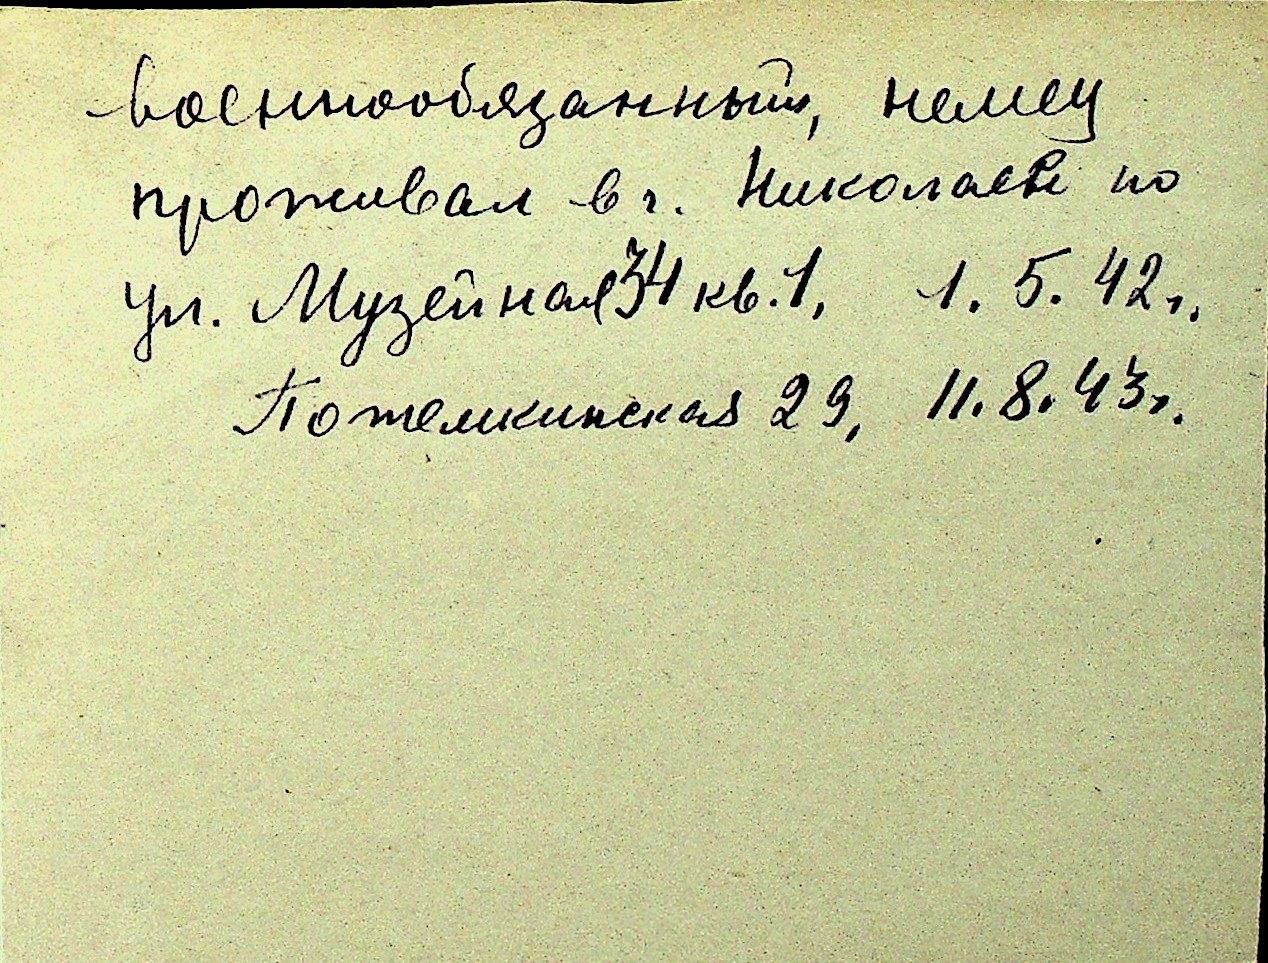 военнообязанный, немец
проживал в г. Николаеве по
ул. Музейная 34 кв. 1, 1. 5. 42 г.
Потемкинская 29, 11. 8. 43 г.